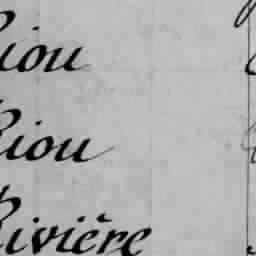 Riou
Riou
Rivière